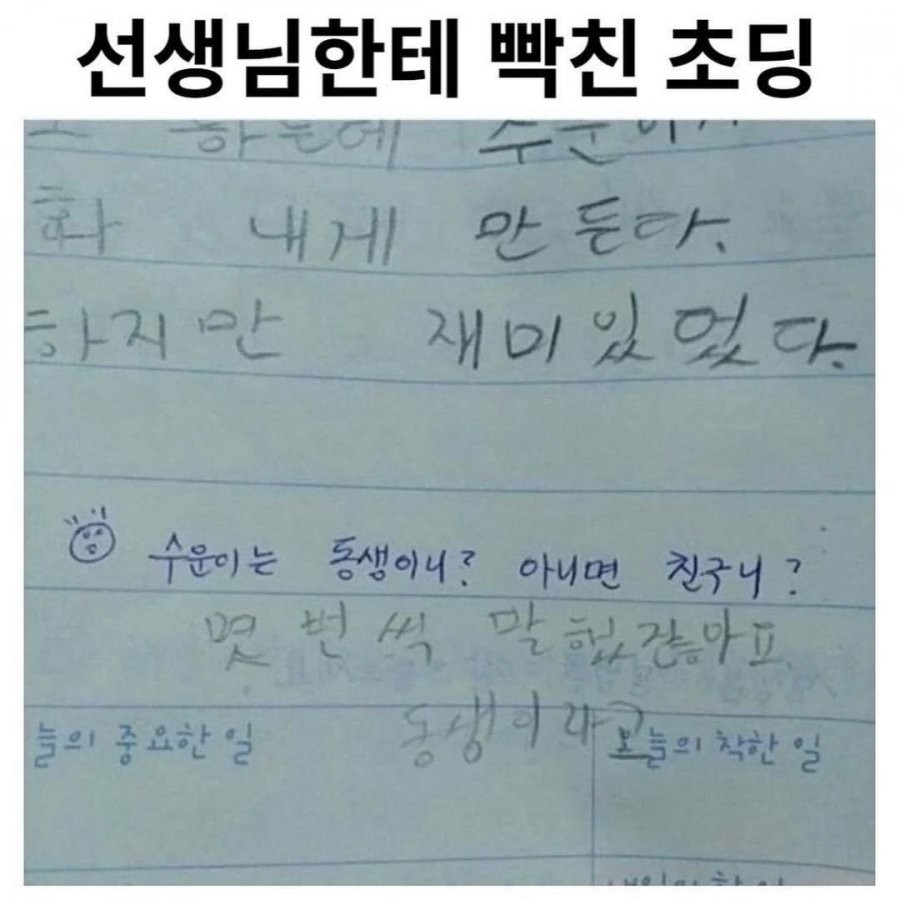 선생님한테 빡친 초딩
하는데 수운이가
화 내게 만든다.
하지만 재미있었다.
수운이는 동생이니? 아니면 친구니?
몇 번 씩 말했잖아요.
동생이라고
늘의 중요한 일
오늘의 착한 일